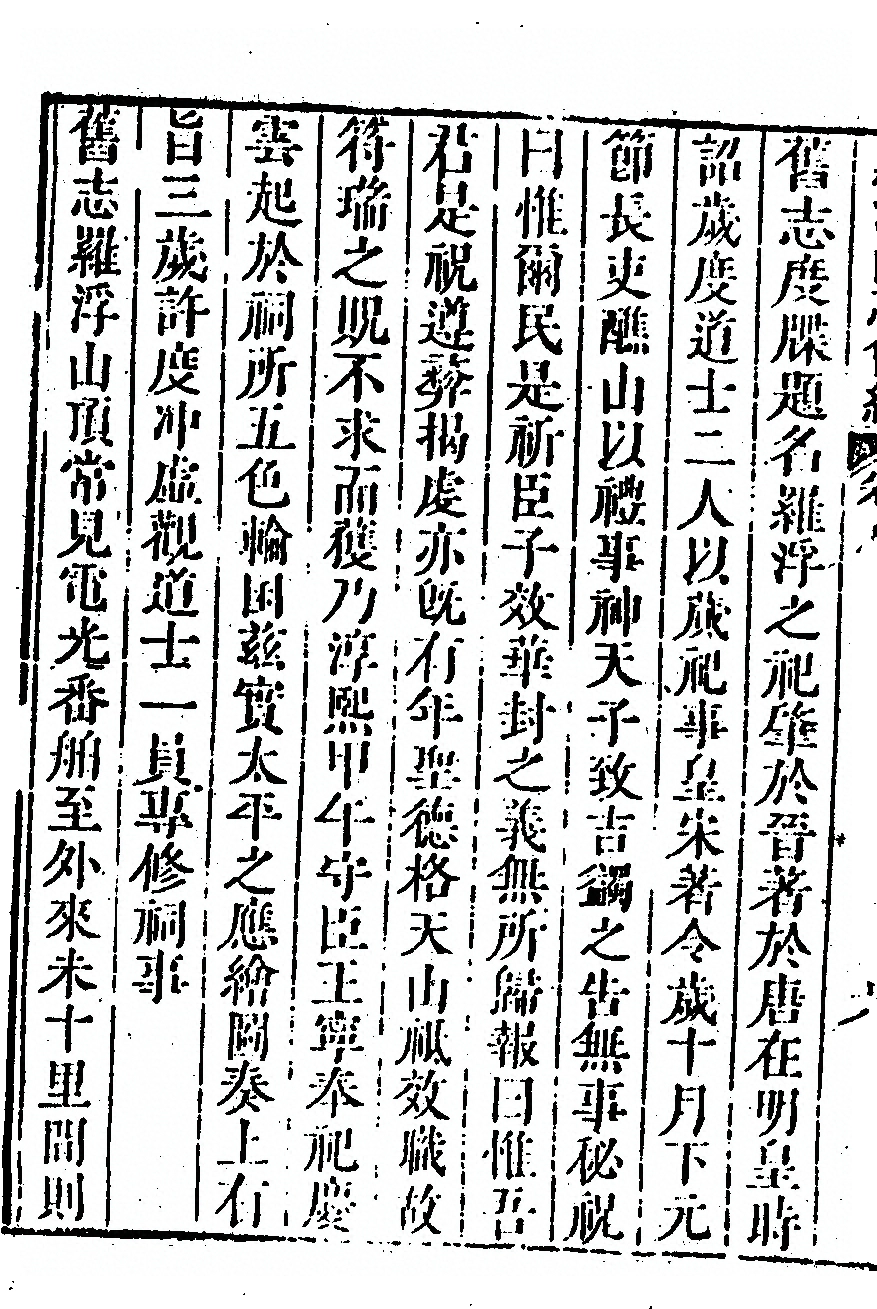 舊志度牒題名羅浮之祀肇於晉著於唐在明皇時
詔歲度道士二人以歲祀事皇宋著令歲十月下元
節長吏醮山以禮事神天子致吉蠲之告無事秘祝
曰惟爾民是祈臣子效華封之義無所歸報曰惟吾
君是祝遵彝揭虔亦旣有年聖德格天山祗效職故
符瑞之貺不求而獲乃淳熙甲午守臣王寧奉祀慶
雲起於祠所五色輪囷兹實太平之應繪圖奏上有
旨三歲許度冲虛觀道士一員專修祠事
舊志羅浮山頂常見電光番舶至外來未十里間則